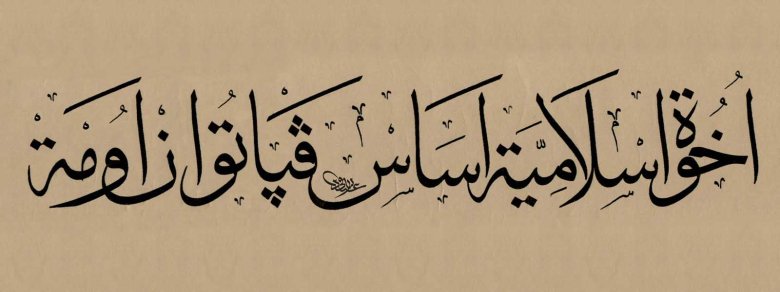 اُخُوة اسْلَامِيَّة اَسَاسْ ڤڽَاتُوان اُومَة